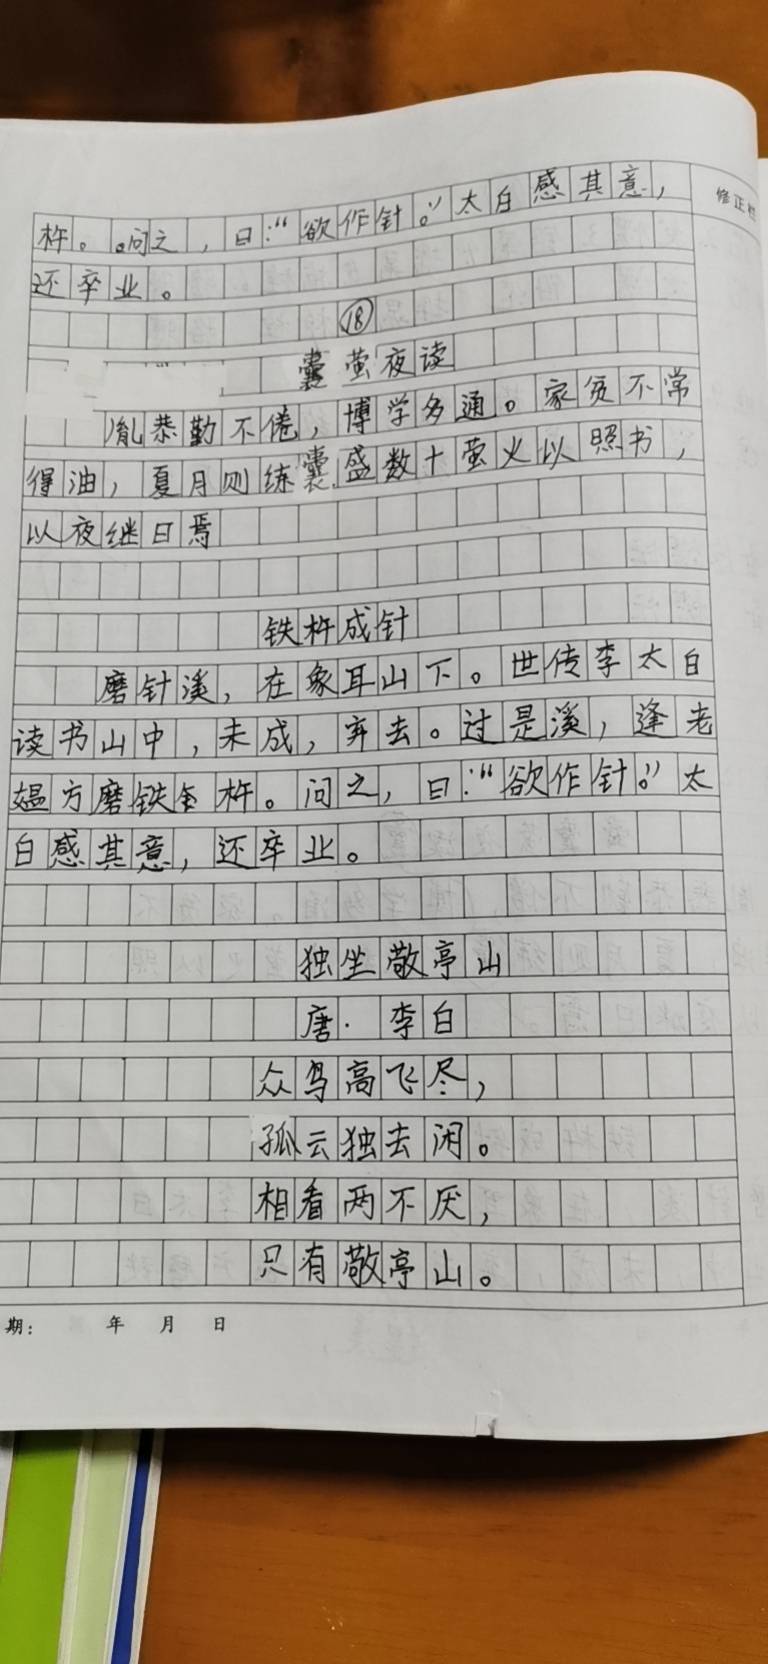 杵。问之，曰：“欲作针。”太白感其意，
修正栏
还卒业。
18
囊萤夜读
胤恭勤不倦，博学多通。家贫不常
得油，夏月则练囊盛数十萤火以照书，
以夜继日焉
铁杵成针
磨针溪，在象耳山下。世传李太白
读书山中，未成，弃去。过是溪，逢老
媪方磨铁杵。问之，曰：“欲作针。”太
白感其意，还卒业。
独坐敬亭山
唐·李白
众鸟高飞尽，
孤云独去闲。
相看两不厌，
只有敬亭山。
期： 年 月 日